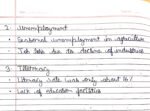 2. Unemployment
• Seasonal unemployment in agriculture
• Job loss due to decline of industries
3. Illiteracy
• Literacy rate was only about 16%
• Lack of education facilities